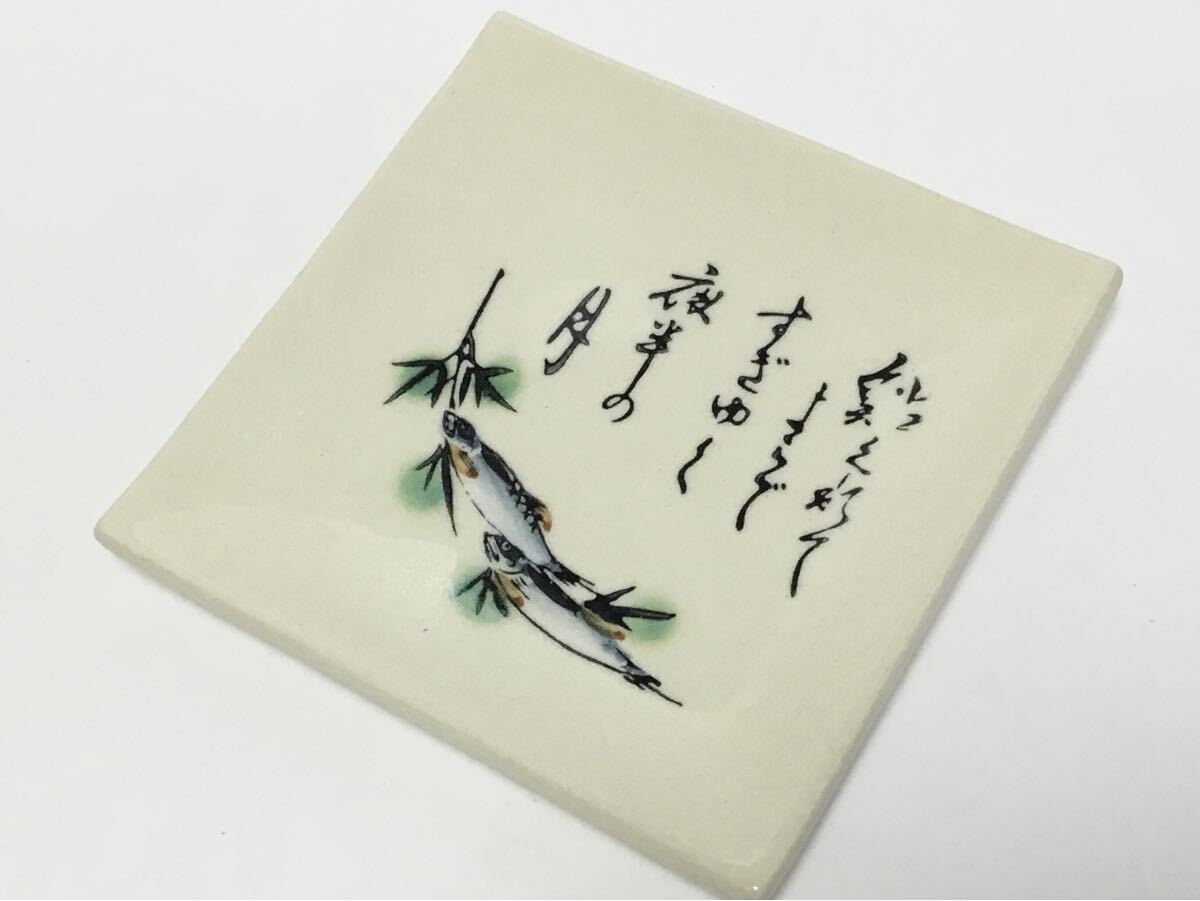 鮎くれて
よらで
すぎゆく
夜半の
月